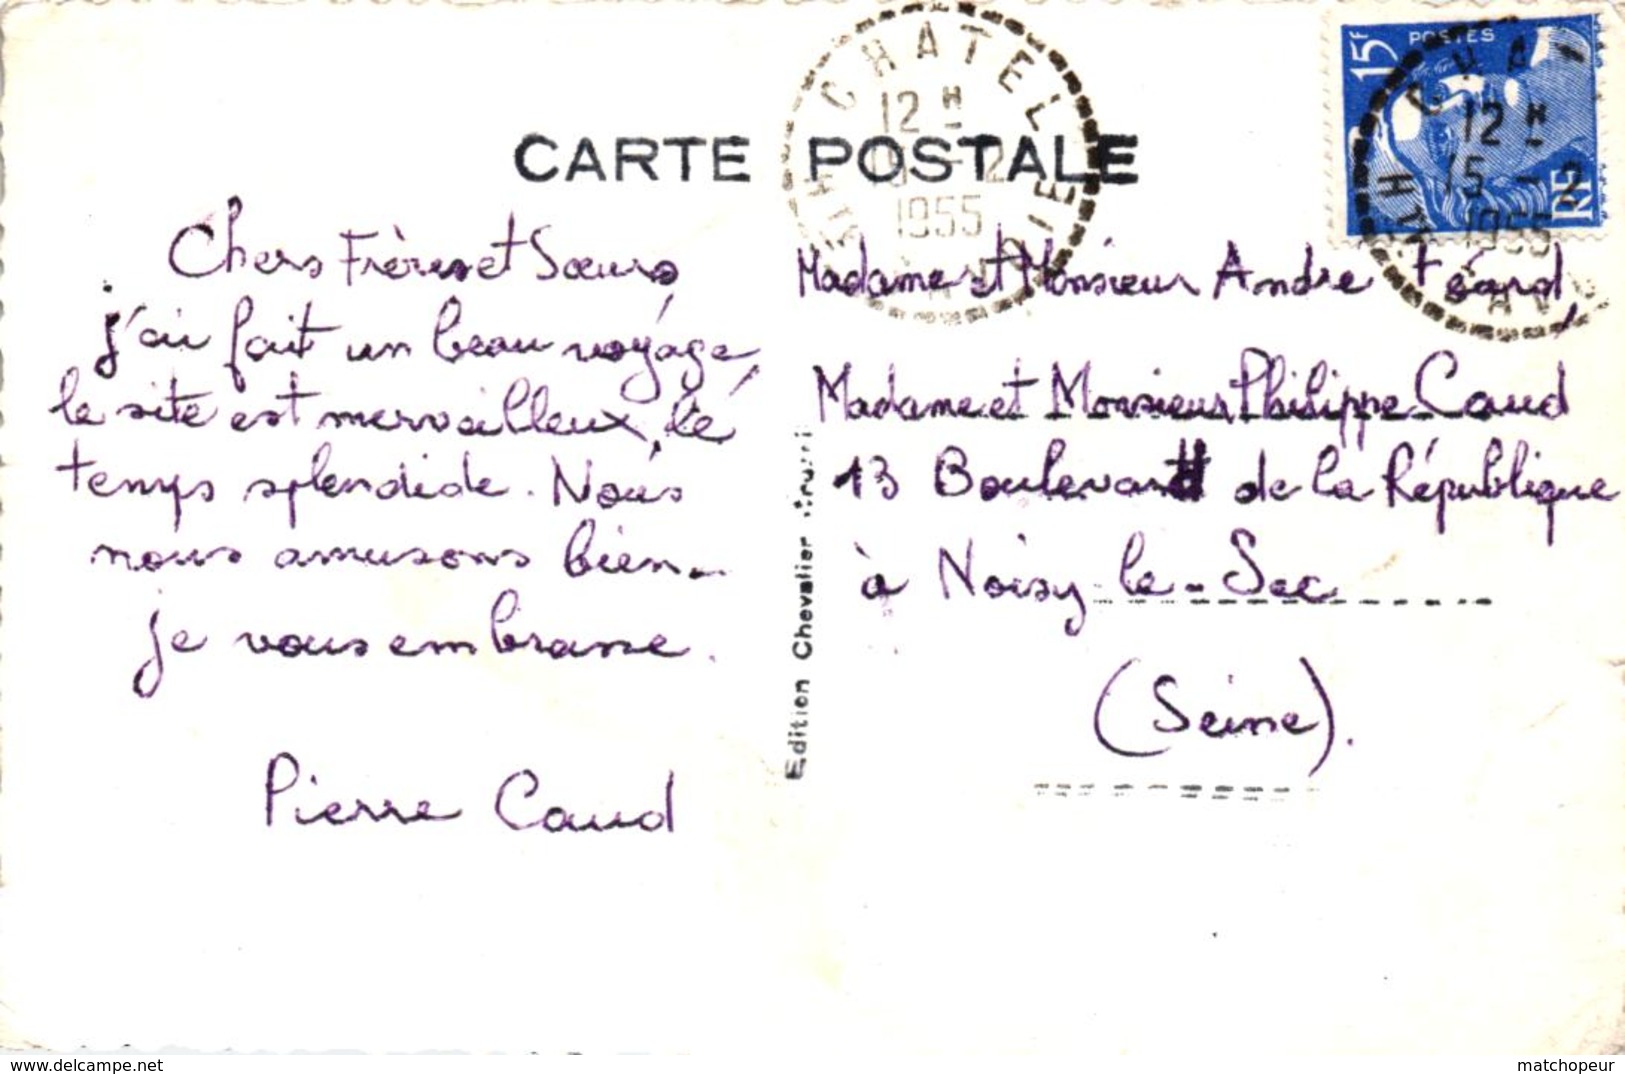 CARTE POSTALE
CHATEL
12 H
15 - 2
1955
HTE SAVOIE
15F
POSTES
RF
12 H
15 - 2
1955
Chers Frères et Sœurs
j'ai fait un beau voyage,
le site est mervailleux, le
temps splendide. Nous
nous amusons bien.
je vous embrasse.
Pierre Caud
Edition Chevalier
Madame et Monsieur Andre Féard,
Madame et Monsieur Philippe Caud
13 Boulevard de la République
à Noisy-le-Sec
(Seine).
delcampe.net
matchopeur